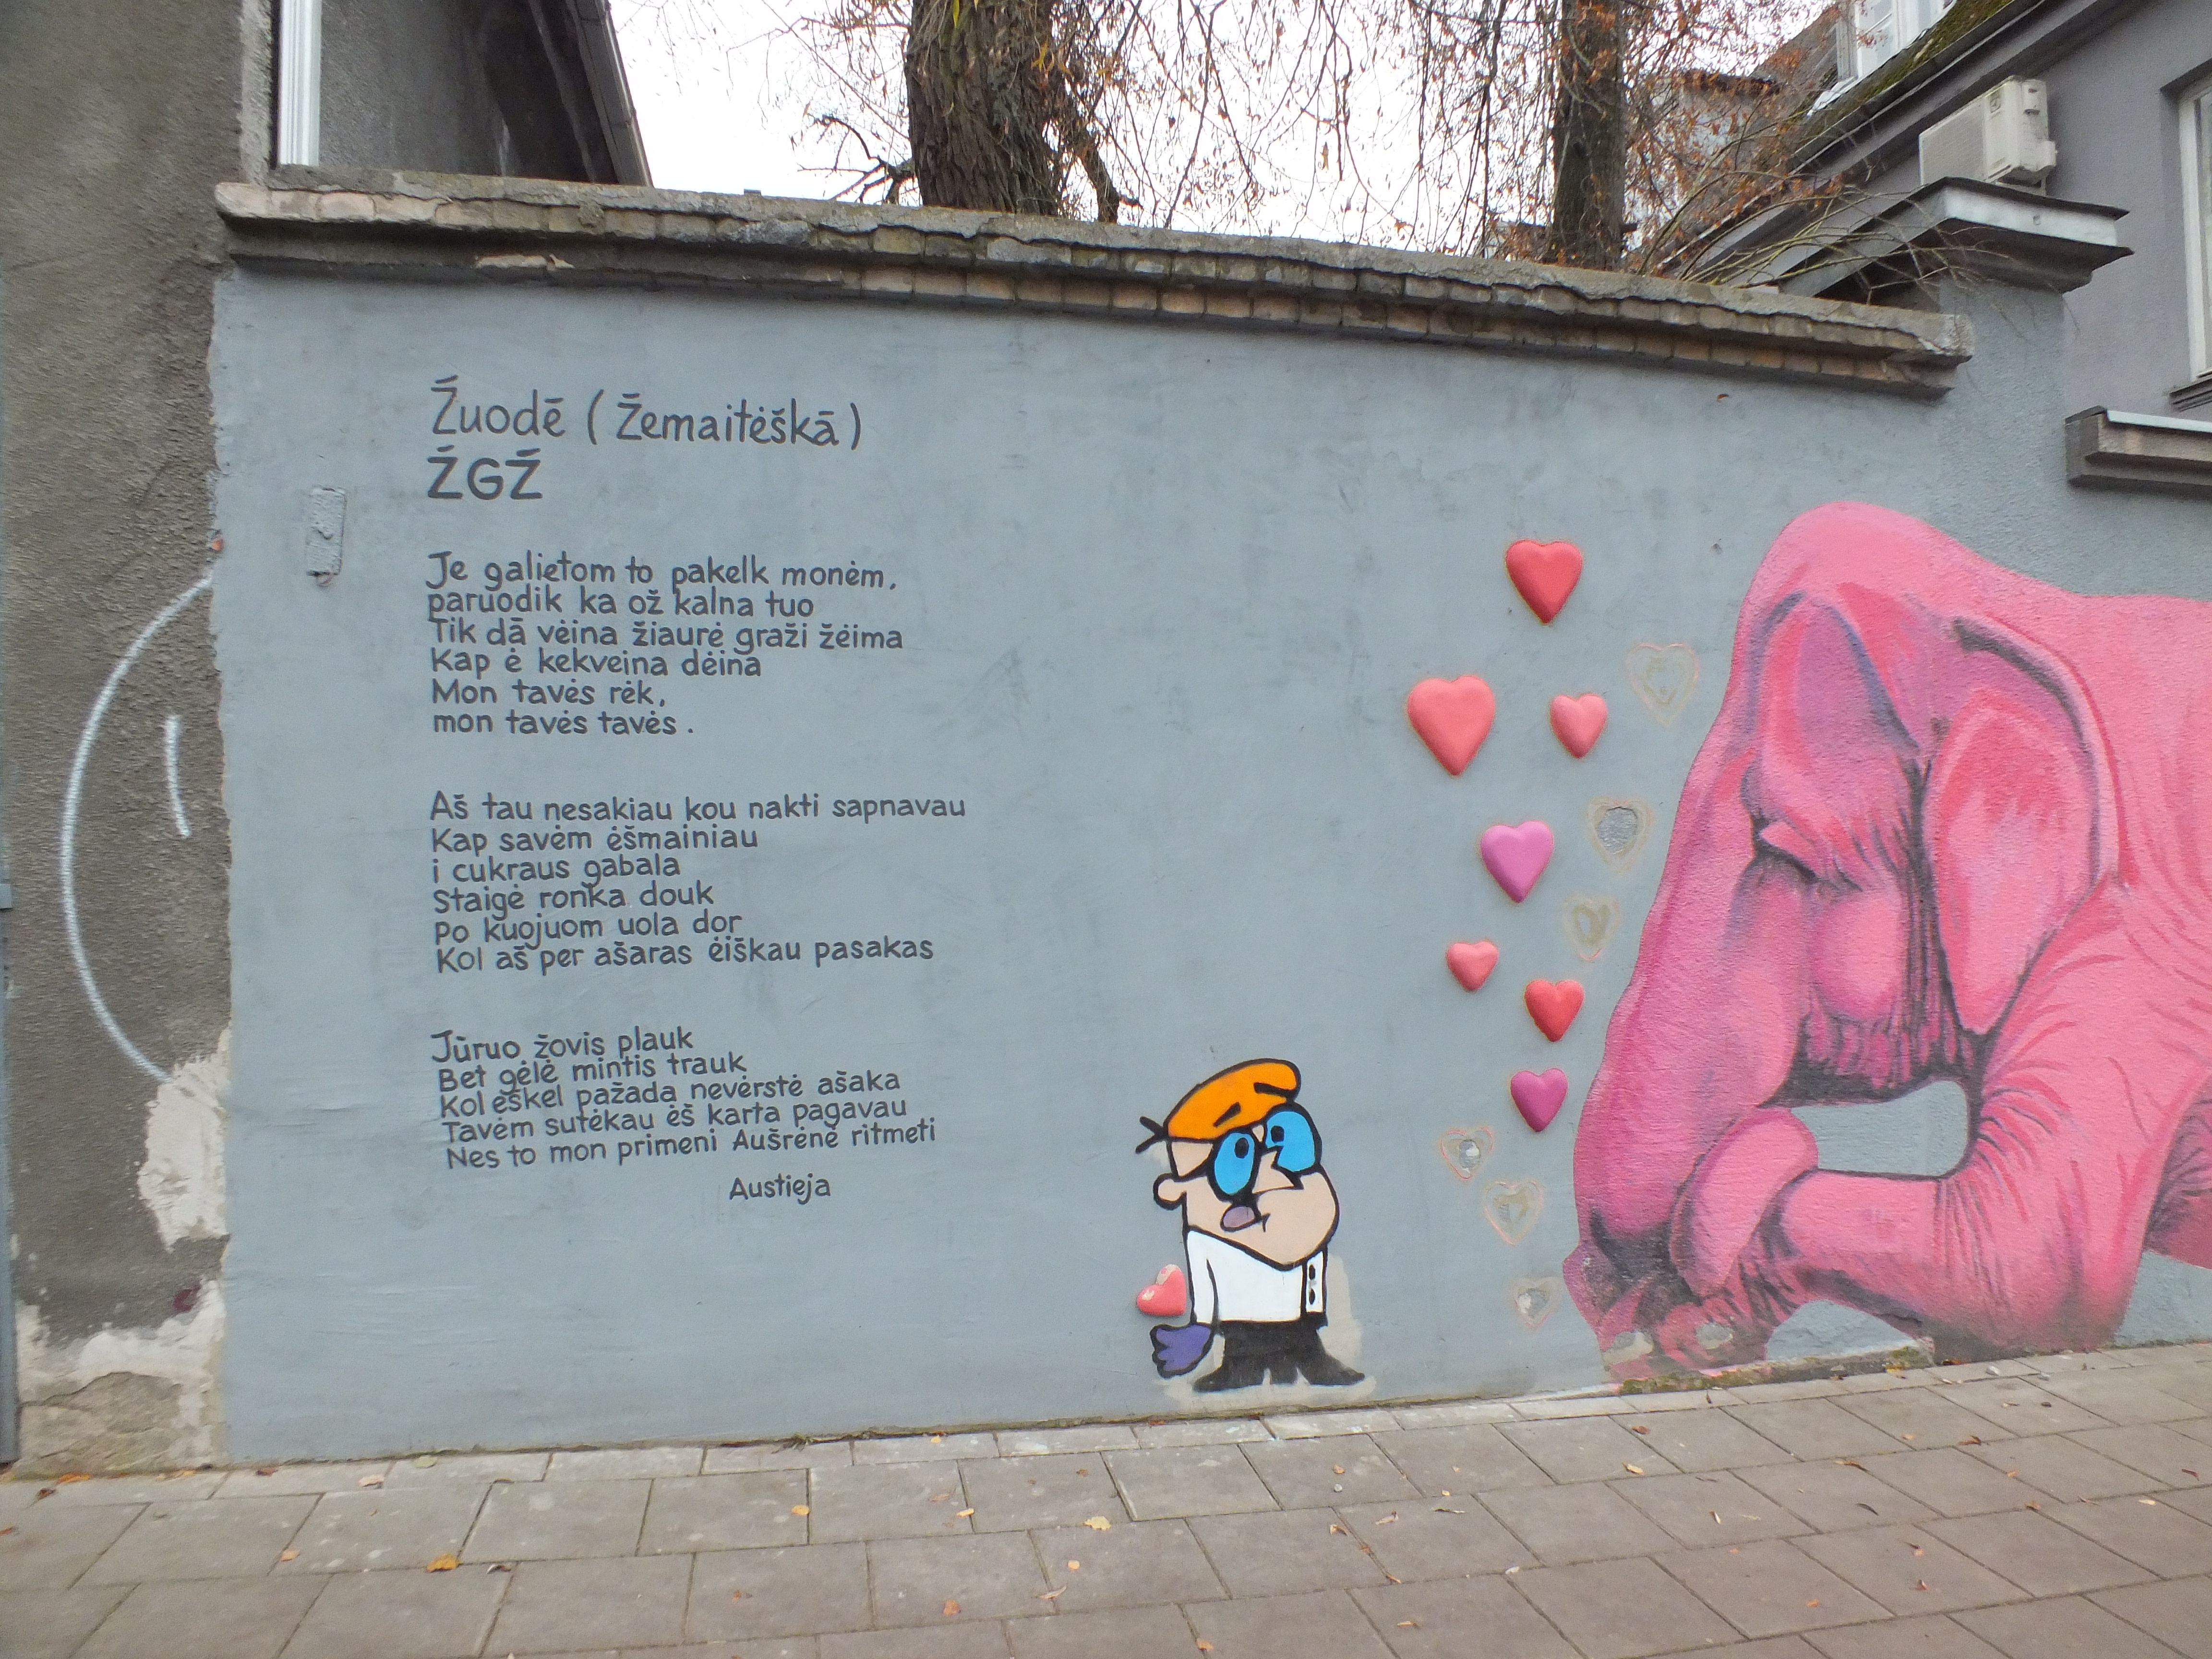 Žuodē (Žemaitėškā)
ŽGŽ
Je galietom to pakelk monėm,
paruodik ka ož kalna tuo
Tik dā vėina žiaurė graži žėima
Kap ė kekveina dėina
Mon tavės rėk,
mon tavės tavės.
Aš tau nesakiau kou nakti sapnavau
Kap savėm ėšmainiau
i cukraus gabala
Staigė ronka douk
Po kuojuom uola dor
Kol aš per ašaras ėiškau pasakas
Jūruo žovis plauk
Bet gėlė mintis trauk
Kol ėškel pažada nevėrstė ašaka
Tavėm sutėkau ėš karta pagavau
Nes to mon primeni Aušrėnė ritmeti
Austieja